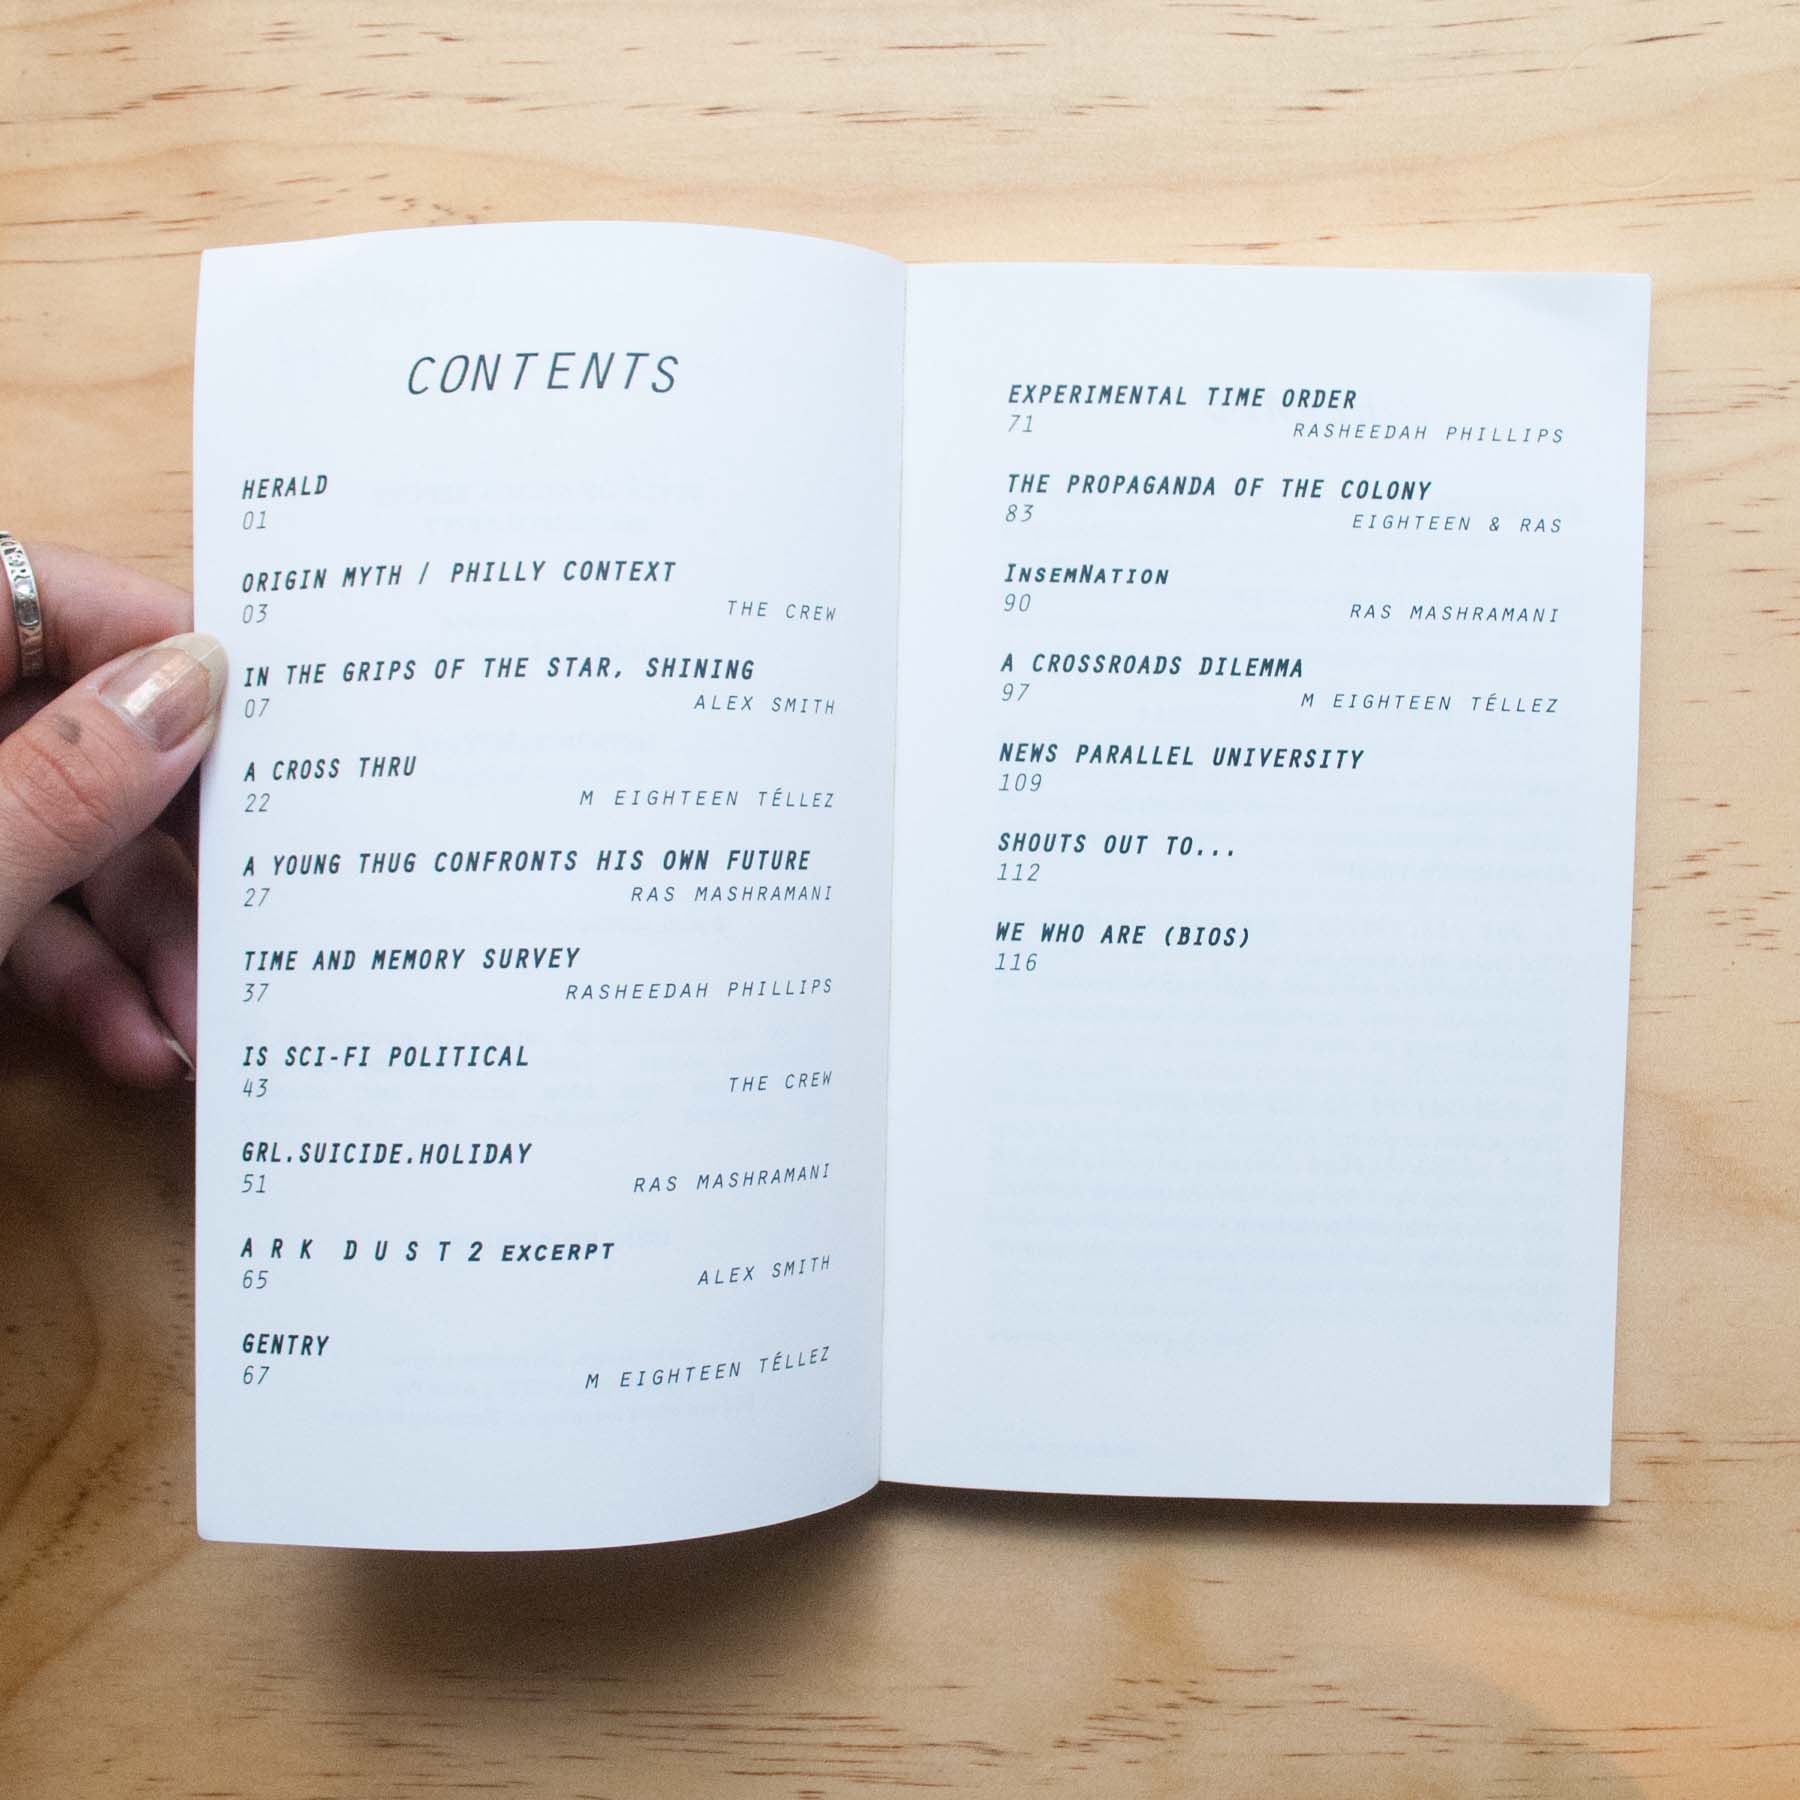 CONTENTS
HERALD
01
ORIGIN MYTH / PHILLY CONTEXT
03 THE CREW
IN THE GRIPS OF THE STAR, SHINING
07 ALEX SMITH
A CROSS THRU
22 M EIGHTEEN TÉLLEZ
A YOUNG THUG CONFRONTS HIS OWN FUTURE
27 RAS MASHRAMANI
TIME AND MEMORY SURVEY
37 RASHEEDAH PHILLIPS
IS SCI-FI POLITICAL
43 THE CREW
GRL.SUICIDE.HOLIDAY
51 RAS MASHRAMANI
A R K  D U S T 2 EXCERPT
65 ALEX SMITH
GENTRY
67 M EIGHTEEN TÉLLEZ
EXPERIMENTAL TIME ORDER
71 RASHEEDAH PHILLIPS
THE PROPAGANDA OF THE COLONY
83 EIGHTEEN & RAS
INSEMNATION
90 RAS MASHRAMANI
A CROSSROADS DILEMMA
97 M EIGHTEEN TÉLLEZ
NEWS PARALLEL UNIVERSITY
109
SHOUTS OUT TO...
112
WE WHO ARE (BIOS)
116